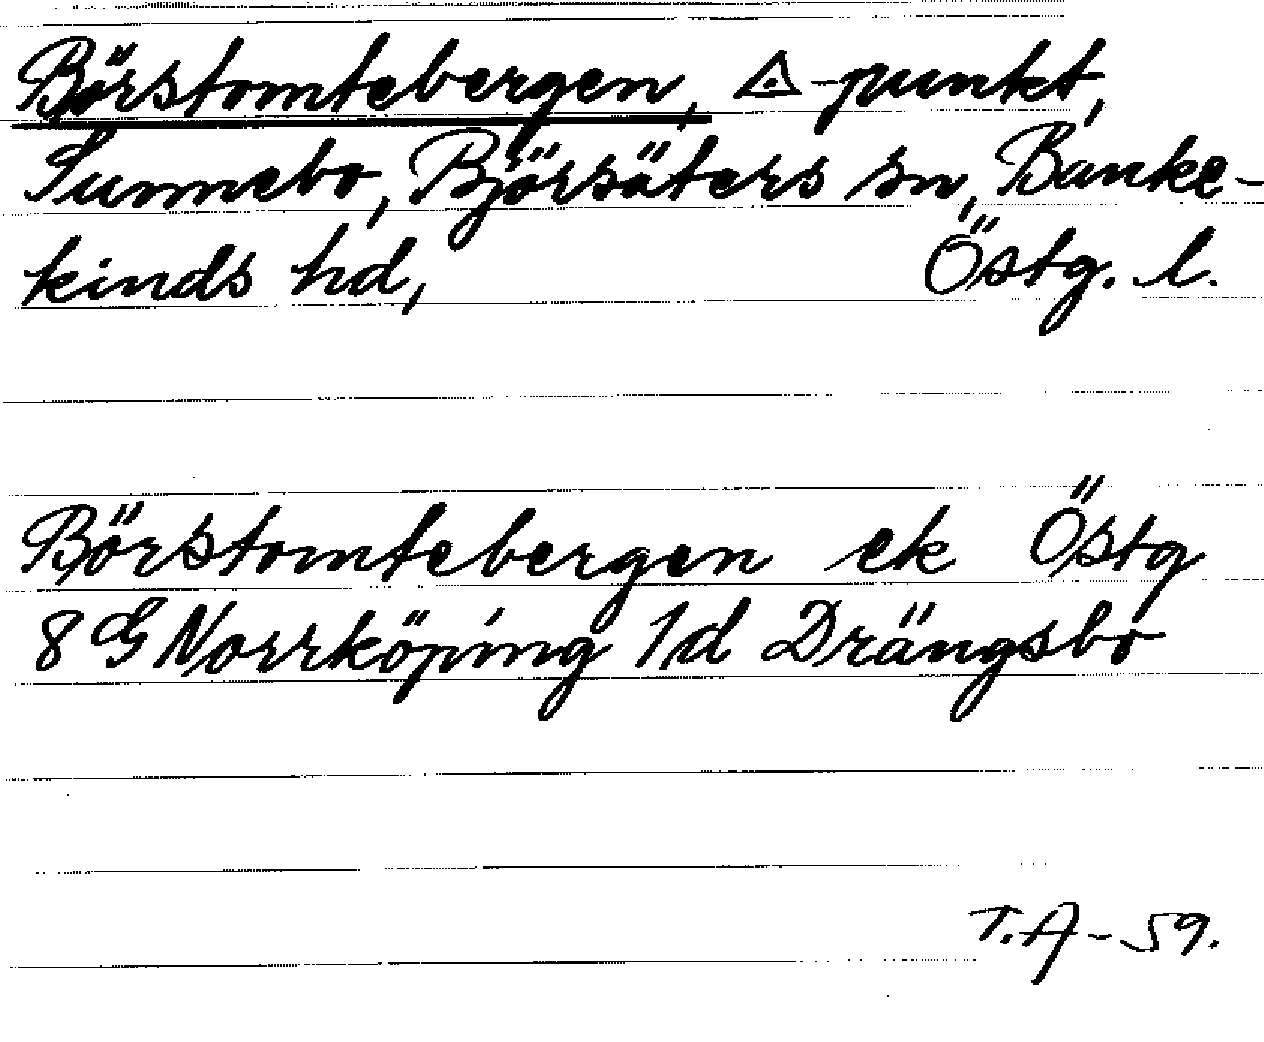 Börstomtebergen, △-punkt,
Sunnebo, Björsäters sn, Banke-
kinds hd, Östg. l.
Börstomtebergen ek Östg
8 G Norrköping 1d Drängsbo
T.A-59.